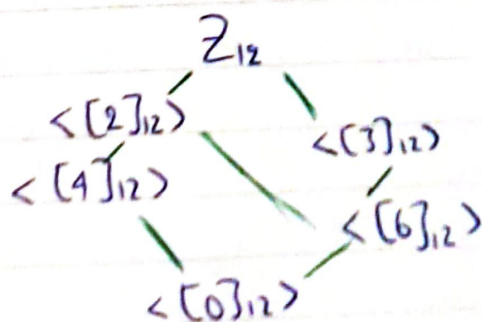 Z₁₂
<[2]₁₂>
<[3]₁₂>
<[4]₁₂>
<[6]₁₂>
<[0]₁₂>